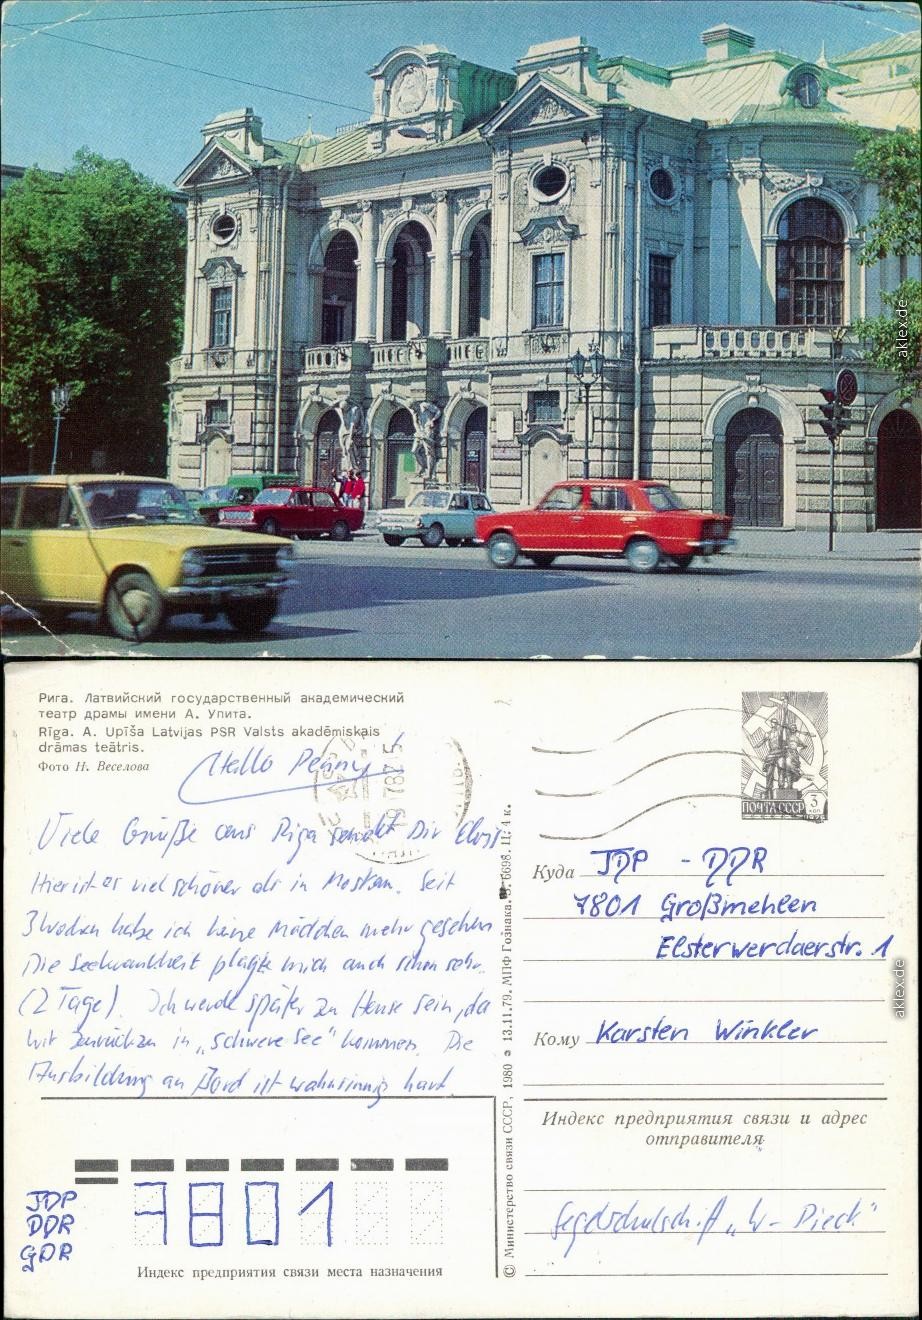 aklex.de
Рига. Латвийский государственный академический
театр драмы имени А. Упита.
Rīga. A. Upīša Latvijas PSR Valsts akadēmiskais
drāmas teātris.
Фото Н. Веселова
Hello Penny!
Viele Grüße aus Riga sendet Dir
Hier ist es viel schöner als in Moskau. Seit
3 Wochen habe ich keine Mädchen mehr gesehen.
Die Seekrankheit plagte mich auch schon sehr.
(2 Tage). Ich werde später zu Hause sein, da
wir zurück zu in „schwere See" kommen. Die
Ausbildung an Bord ist wahnsinnig hart.
JDP
DDR
GDR
7801
Индекс предприятия связи места назначения
© Министерство связи СССР, 1980 13.11.79. МПФ Гознака. З. 6698. Ц. 4 к.
ПОЧТА СССР 3 коп
1976
Куда JDP - DDR
7801 Großmehlen
Elsterwerdaerstr. 1
Кому Karsten Winkler
Индекс предприятия связи и адрес
отправителя
Segelschulschiff „W-Pieck"
aklex.de